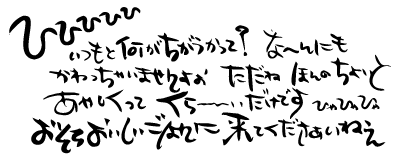 ひひひひひひ
いつもと何がちがうかって? な〜んにも
かわっちゃいませんよぉ ただね ほんのちょいと
あやしくって くら〜〜いだけです ひゃひひひ
おそろおいしいごはんに 来てくださあいねぇ